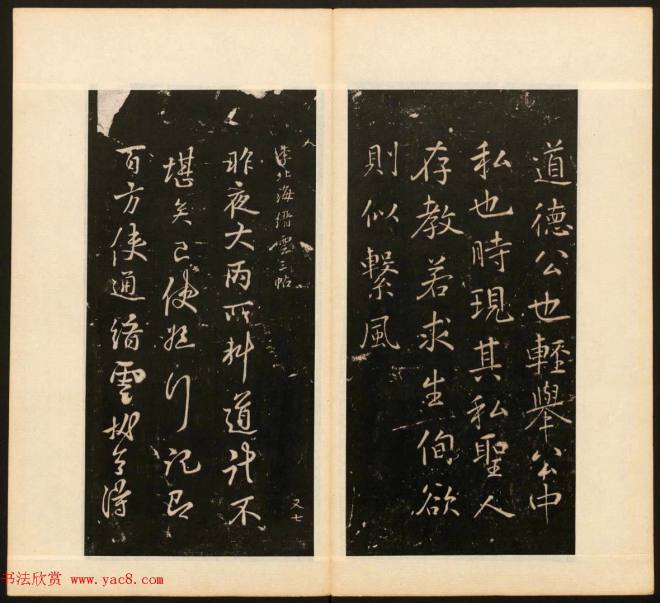 道德公也輕舉公中
私也時現其私聖人
存教若求生徇欲
則似繫風
李北海縉雲三帖
昨夜大雨所料道計不
堪矣已使
行記即
百方使通縉雲
得
又七
书法欣赏 www.yac8.com